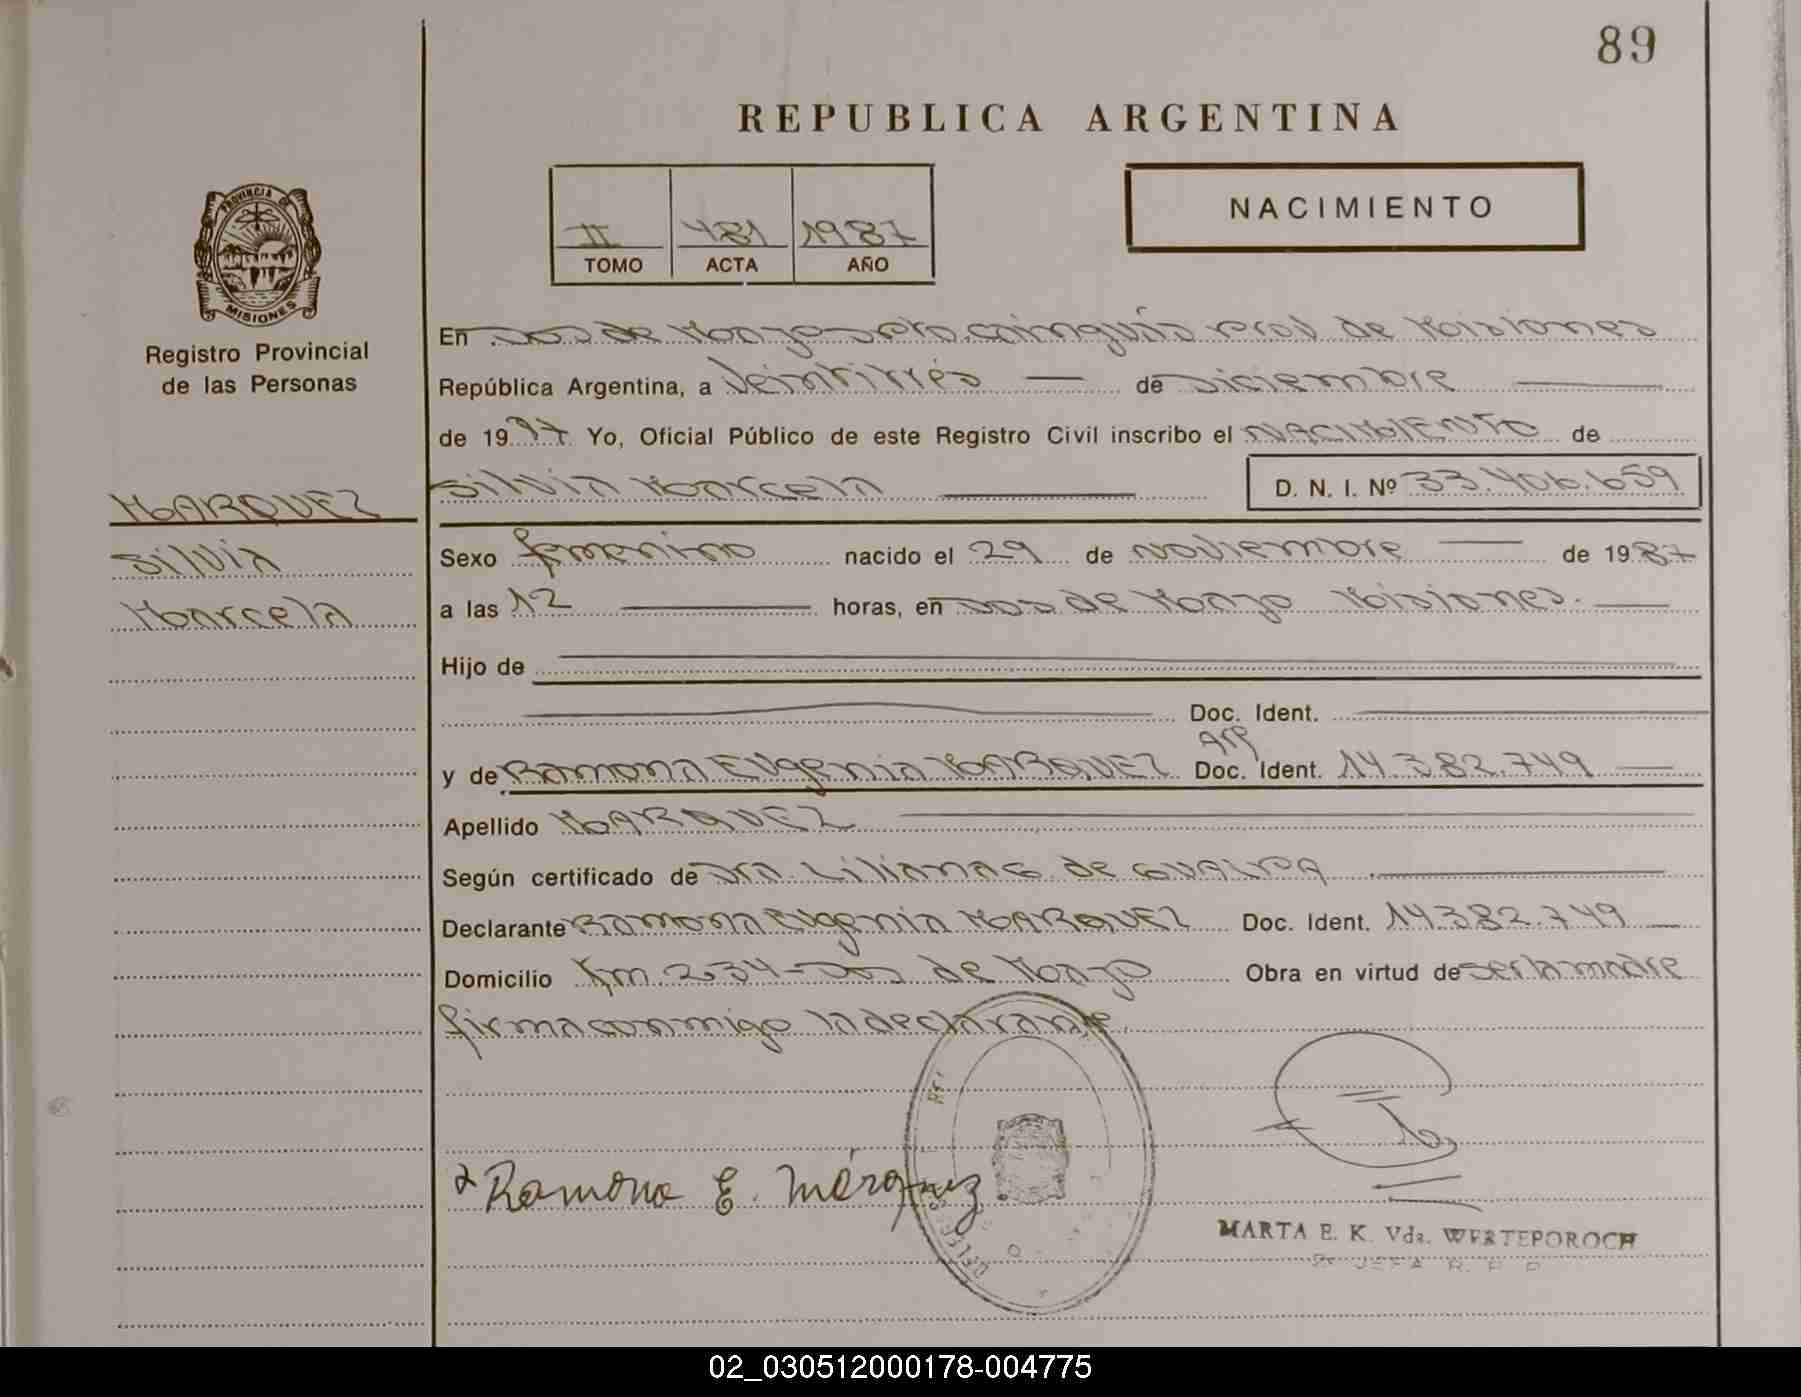 89
REPUBLICA ARGENTINA
II 481 1987
TOMO ACTA AÑO
NACIMIENTO
PROVINCIA DE
MISIONES
Registro Provincial
de las Personas
En Dos de Mayo Dpto. Cainguás Prov. de Misiones
República Argentina, a Veintitrés de Diciembre
de 1987 Yo, Oficial Público de este Registro Civil inscribo el NACIMIENTO de
Silvia Marcela D. N. I. Nº 33.406.659
MARQUEZ
Silvia
Marcela
Sexo femenino nacido el 29 de noviembre de 1987
a las 12 horas, en Dos de Mayo Misiones.
Hijo de
Doc. Ident.
y de Ramona Eugenia MARQUEZ Doc. Ident. 14.382.749
Apellido MARQUEZ
Según certificado de Dra. Liliana de
Declarante Ramona Eugenia MARQUEZ Doc. Ident. 14.382.749
Domicilio Km. 234 - Dos de Mayo Obra en virtud de ser la madre
firma conmigo la declarante.
Ramona E. Márquez
MARTA E. K. Vda. WERTEPOROCH
JEFA R. P. P.
02_030512000178-004775